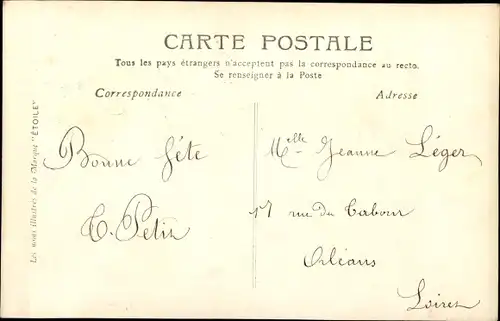 CARTE POSTALE
Tous les pays étrangers n'acceptent pas la correspondance au recto.
Se renseigner à la Poste
Correspondance
Adresse
Les noms illustrés de la Marque "ÉTOILE"
Bonne fête
Melle Jeanne Léger
17 rue du Tabour
Orléans
Loiret